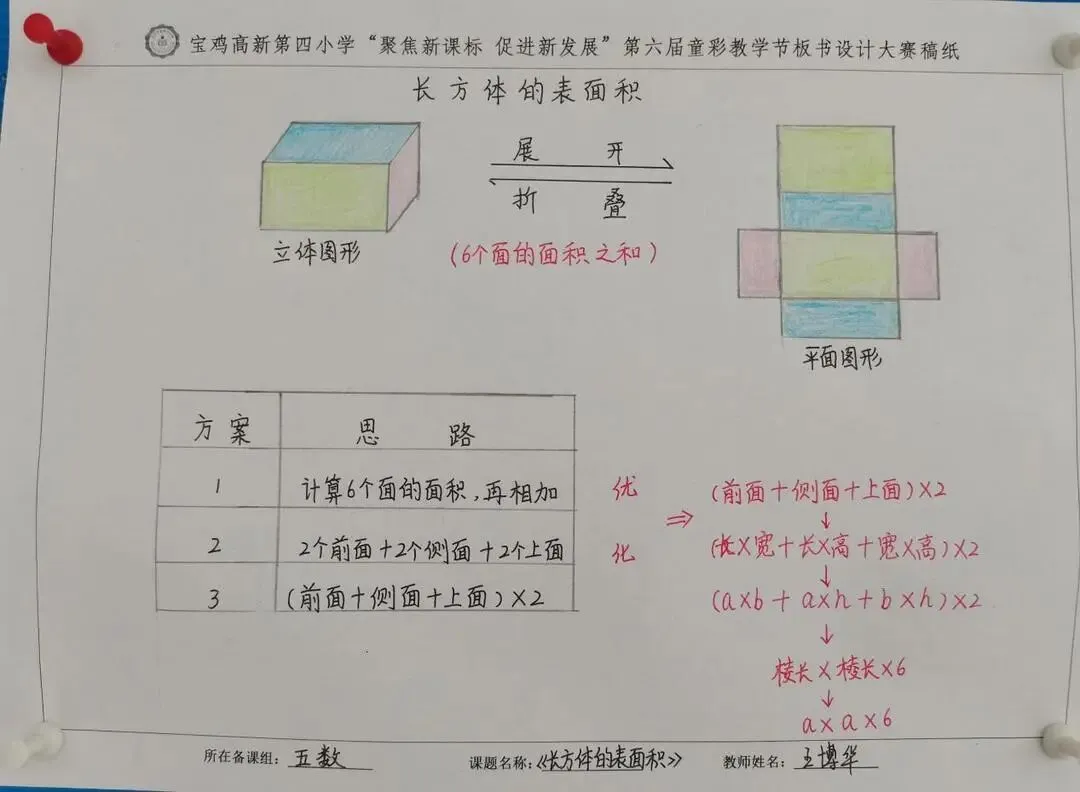 宝鸡高新第四小学“聚焦新课标 促进新发展”第六届童彩教学节板书设计大赛稿纸
长方体的表面积
展 开
折 叠
立体图形
(6个面的面积之和)
平面图形
方案 思 路
1 计算6个面的面积,再相加
2 2个前面+2个侧面+2个上面
3 (前面+侧面+上面)×2
优
化
⇒ (前面+侧面+上面)×2
↓
(长×宽+长×高+宽×高)×2
↓
(a×b+a×h+b×h)×2
↓
棱长×棱长×6
↓
a×a×6
所在备课组: 五数 课题名称:《长方体的表面积》 教师姓名: 王博华